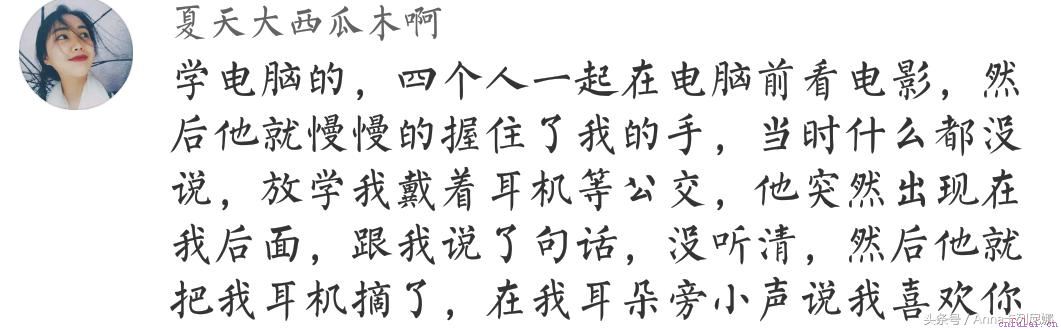 夏天大西瓜木啊
学电脑的，四个人一起在电脑前看电影，然
后他就慢慢的握住了我的手，当时什么都没
说，放学我戴着耳机等公交，他突然出现在
我后面，跟我说了句话，没听清，然后他就
把我耳机摘了，在我耳朵旁小声说我喜欢你
头条号 / Anna